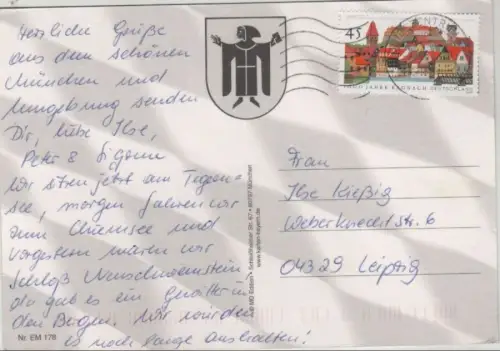 Herzliche Grüße
aus dem schönen
München und
Umgebung senden
Dir, liebe Ilse,
Peter &
Wir sitzen jetzt am Tegern-
see, morgen fahren wir
zum Chiemsee und
vorgestern waren wir
Schloß Neuschwanstein
da gab es ein Gewitter in
den Bergen. Wir würden
es noch lange aushalten!
Nr. EM 178
www.karten-bayern.de
45
1000 JAHRE KRONACH DEUTSCHLAND
Frau
Ilse Kießig
Weberknechtstr. 6
04329 Leipzig